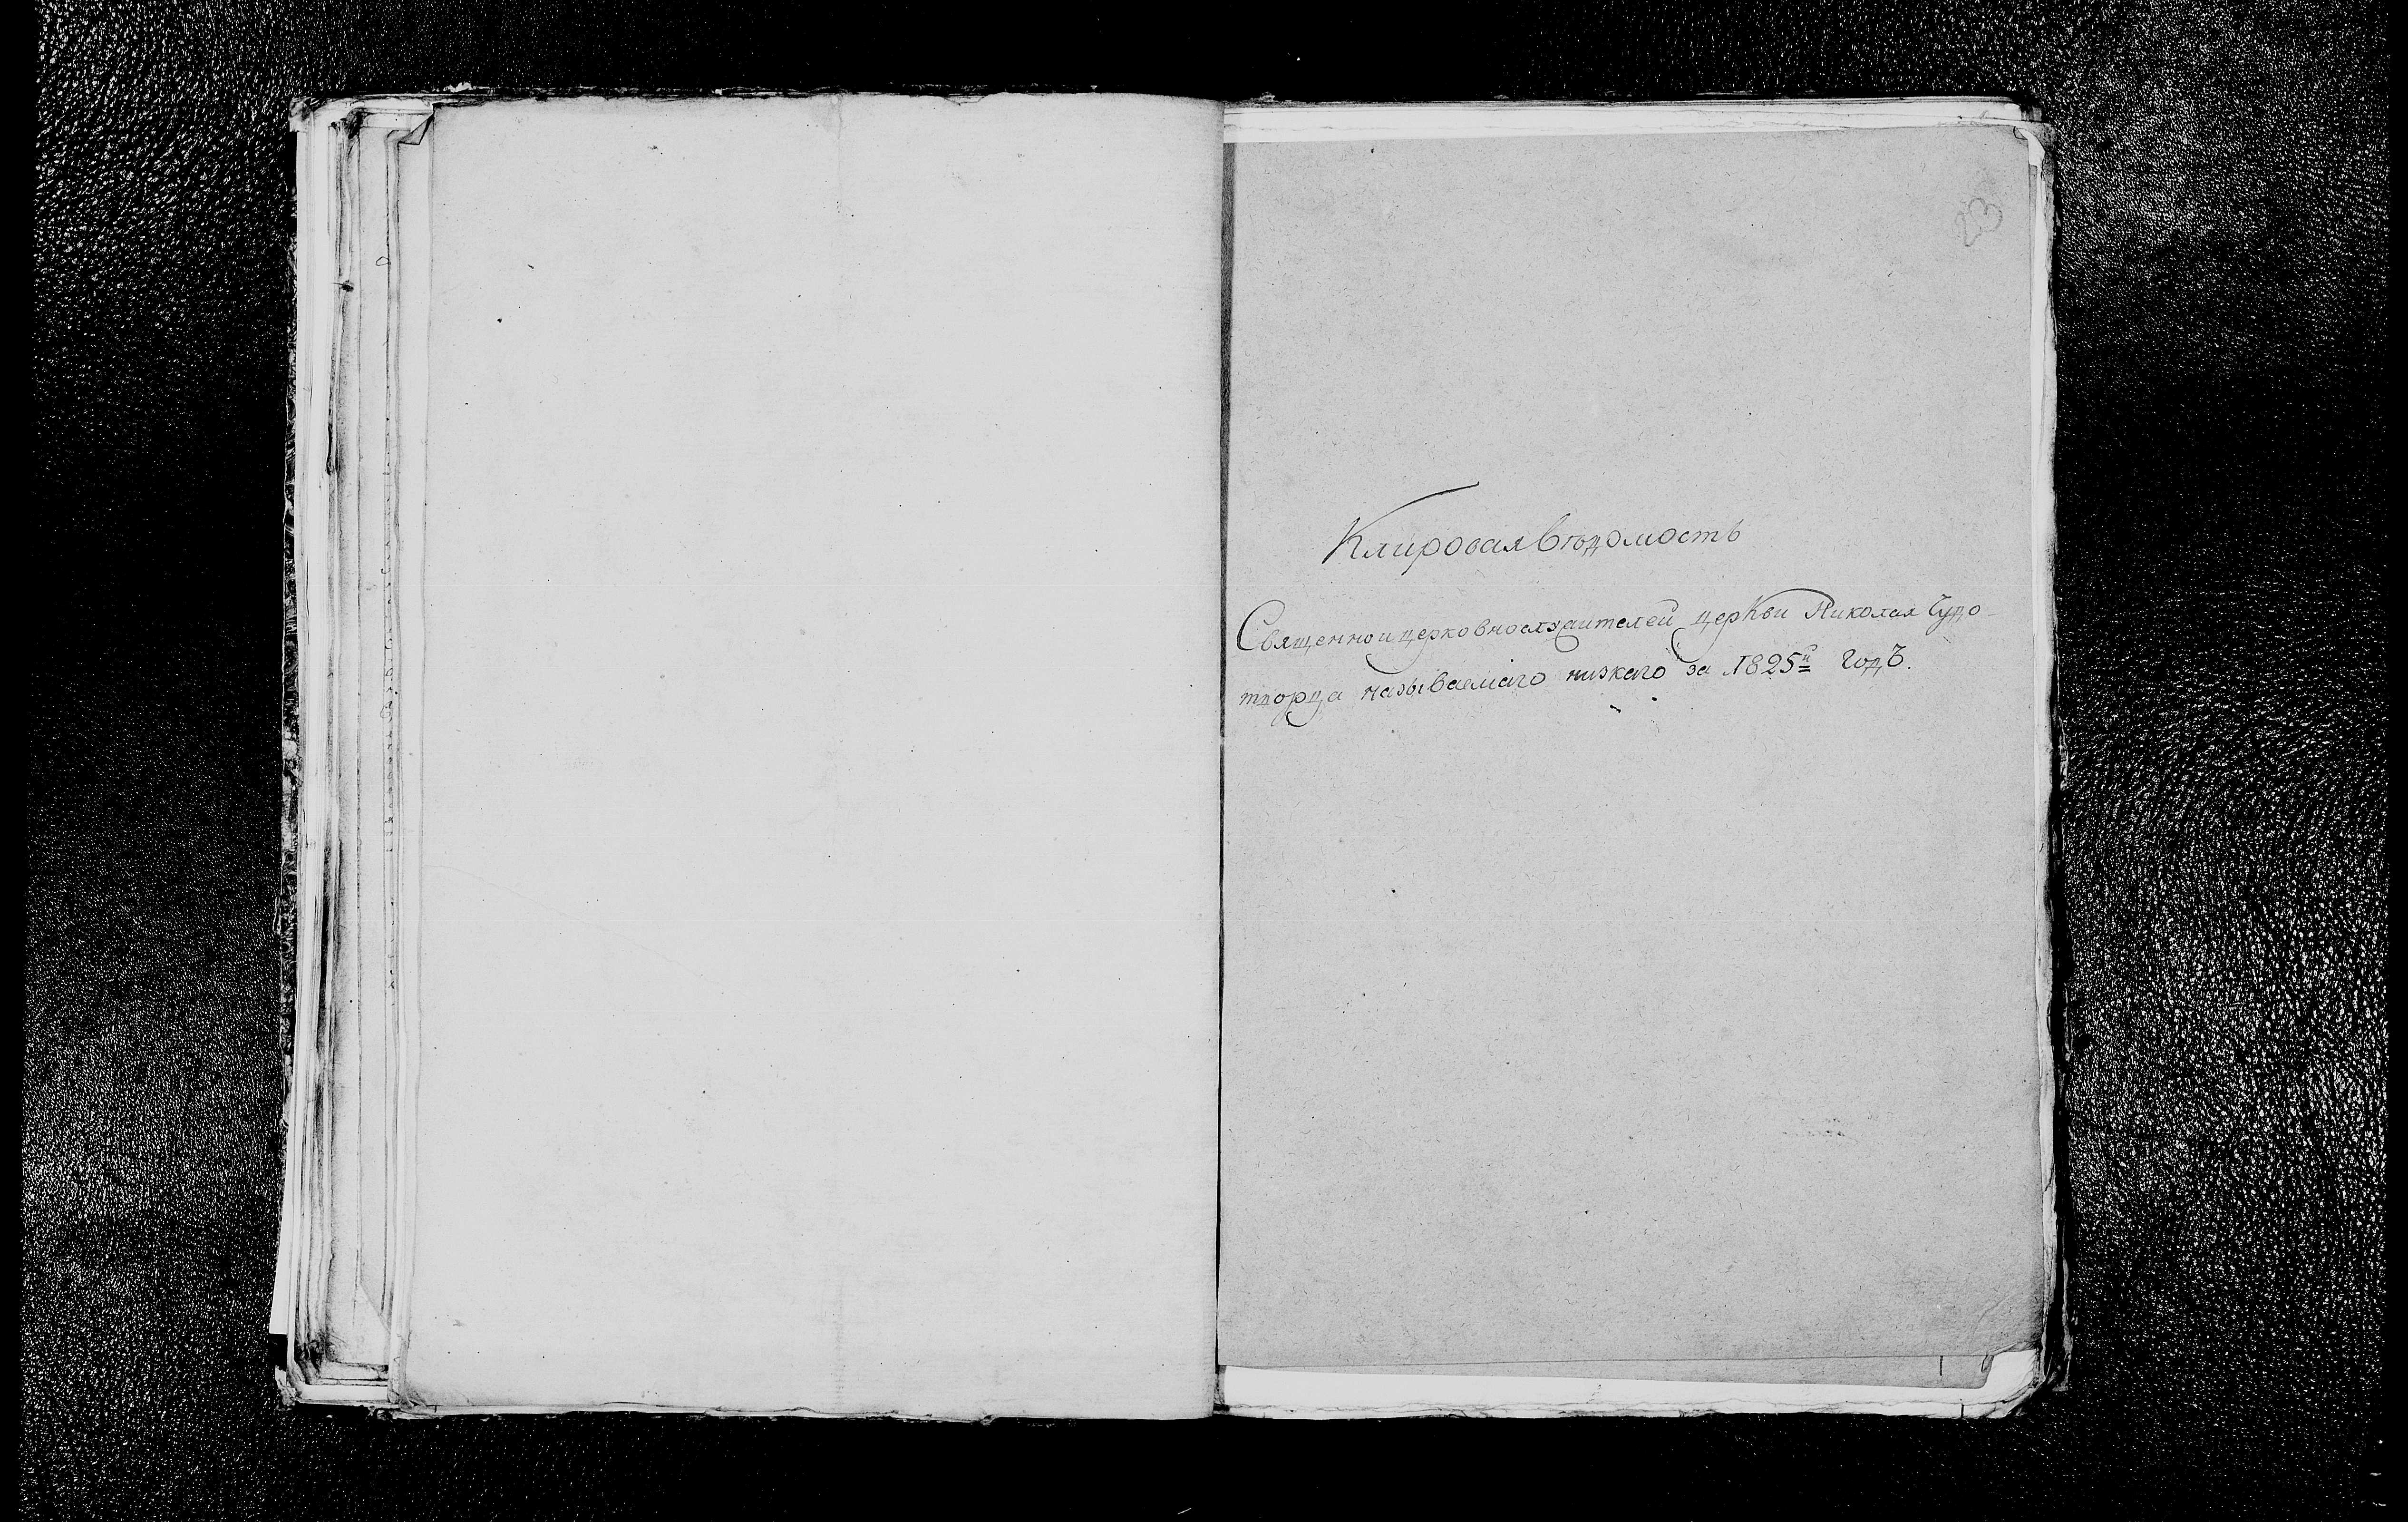 23
Клировая вѣдомость
Священно и церковнослужителей церкви Николая Чудо-
творца называемаго низкаго за 1825й годъ.